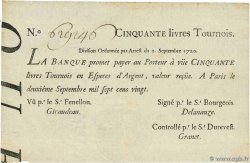 N.o 629146 CINQUANTE livres Tournois.
Division Ordonnée par Arrest du 2. Septembre 1720.
LA BANQUE promet payer au Porteur à vüe CINQUANTE
livres Tournois en Especes d'Argent, valeur reçüe. A Paris le
deuxième Septembre mil sept cens vingt.
Vû p.r le S.r Fenellon. Signé p.r le S.r Bourgeois.
Giraudeau. Delanauze.
Controllé p.r le S.r Durevest.
Granet.